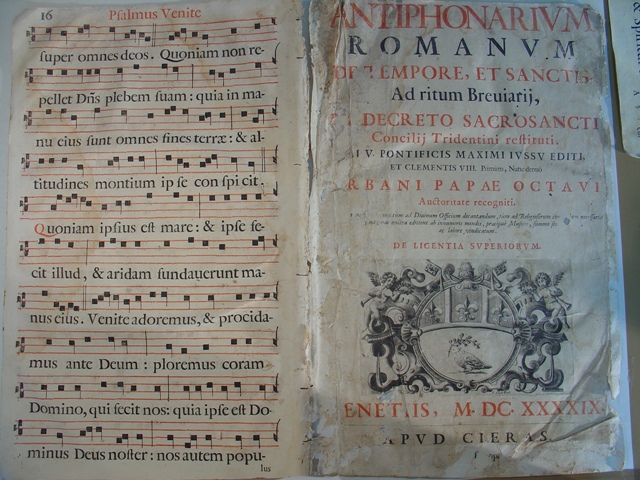 16 Psalmus Venite
super omnes deos. Quoniam non re-
pellet Dñs plebem suam : quia in ma-
nu eius sunt omnes fines terræ : & al-
titudines montium ipse conspicit.
Quoniam ipsius est mare : & ipse fe-
cit illud, & aridam fundauerunt ma-
nus eius. Venite adoremus, & procida-
mus ante Deum : ploremus coram
Domino, qui fecit nos : quia ipse est Do-
minus Deus noster : nos autem popu-
lus
ANTIPHONARIVM
ROMANVM
DE TEMPORE, ET SANCTIS,
Ad ritum Breuiarij,
DECRETO SACROSANCTI
Concilij Tridentini restituti.
V. PONTIFICIS MAXIMI IVSSV EDITI,
ET CLEMENTIS VIII. Primùm, Nunc denuò
RBANI PAPAE OCTAVI
Auctoritate recogniti.
DE LICENTIA SVPERIORVM.
ENETIIS, M. DC. XXXXIX.
APVD CIERAS